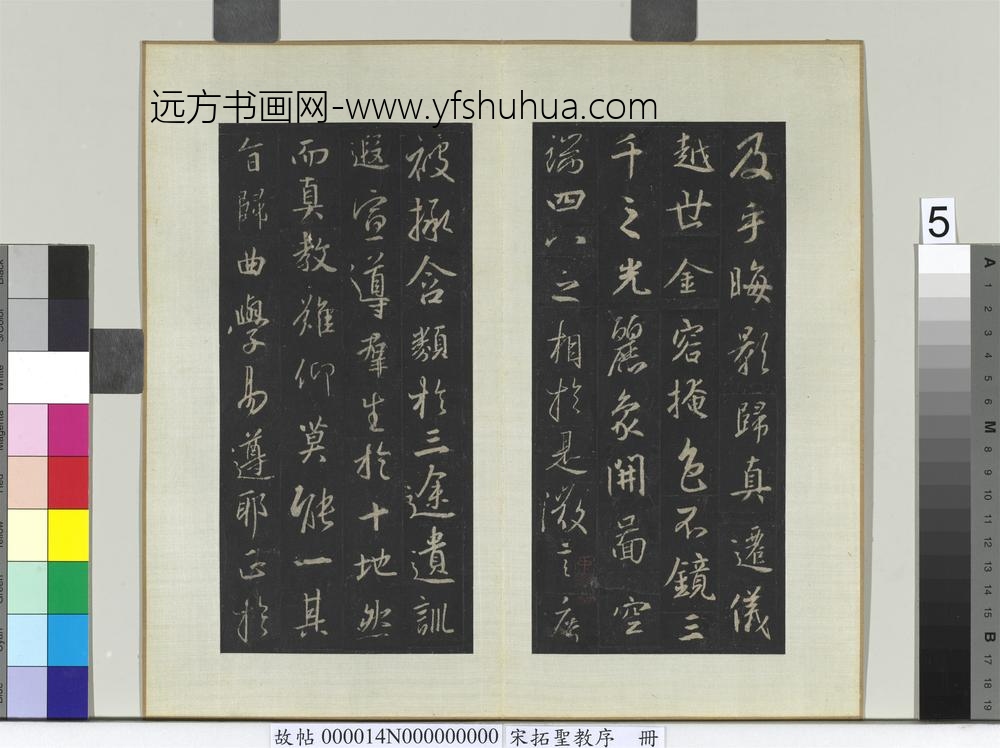 远方书画网-www.yfshuhua.com
及乎晦影歸真遷儀
越世金容掩色不鏡三
千之光麗象開圖空
端四八之相於是微言廣
被拯含類於三途遺訓
遐宣導羣生於十地然
而真教難仰莫能一其
旨歸曲學易遵耶正於
5
A
1
2
3
4
5
6
M
8
9
10
11
12
13
14
15
B
17
18
19
Black
3/Color
White
Magenta
Red
Yellow
Green
Cyan
Blue
故帖 000014N000000000 宋拓聖教序 冊